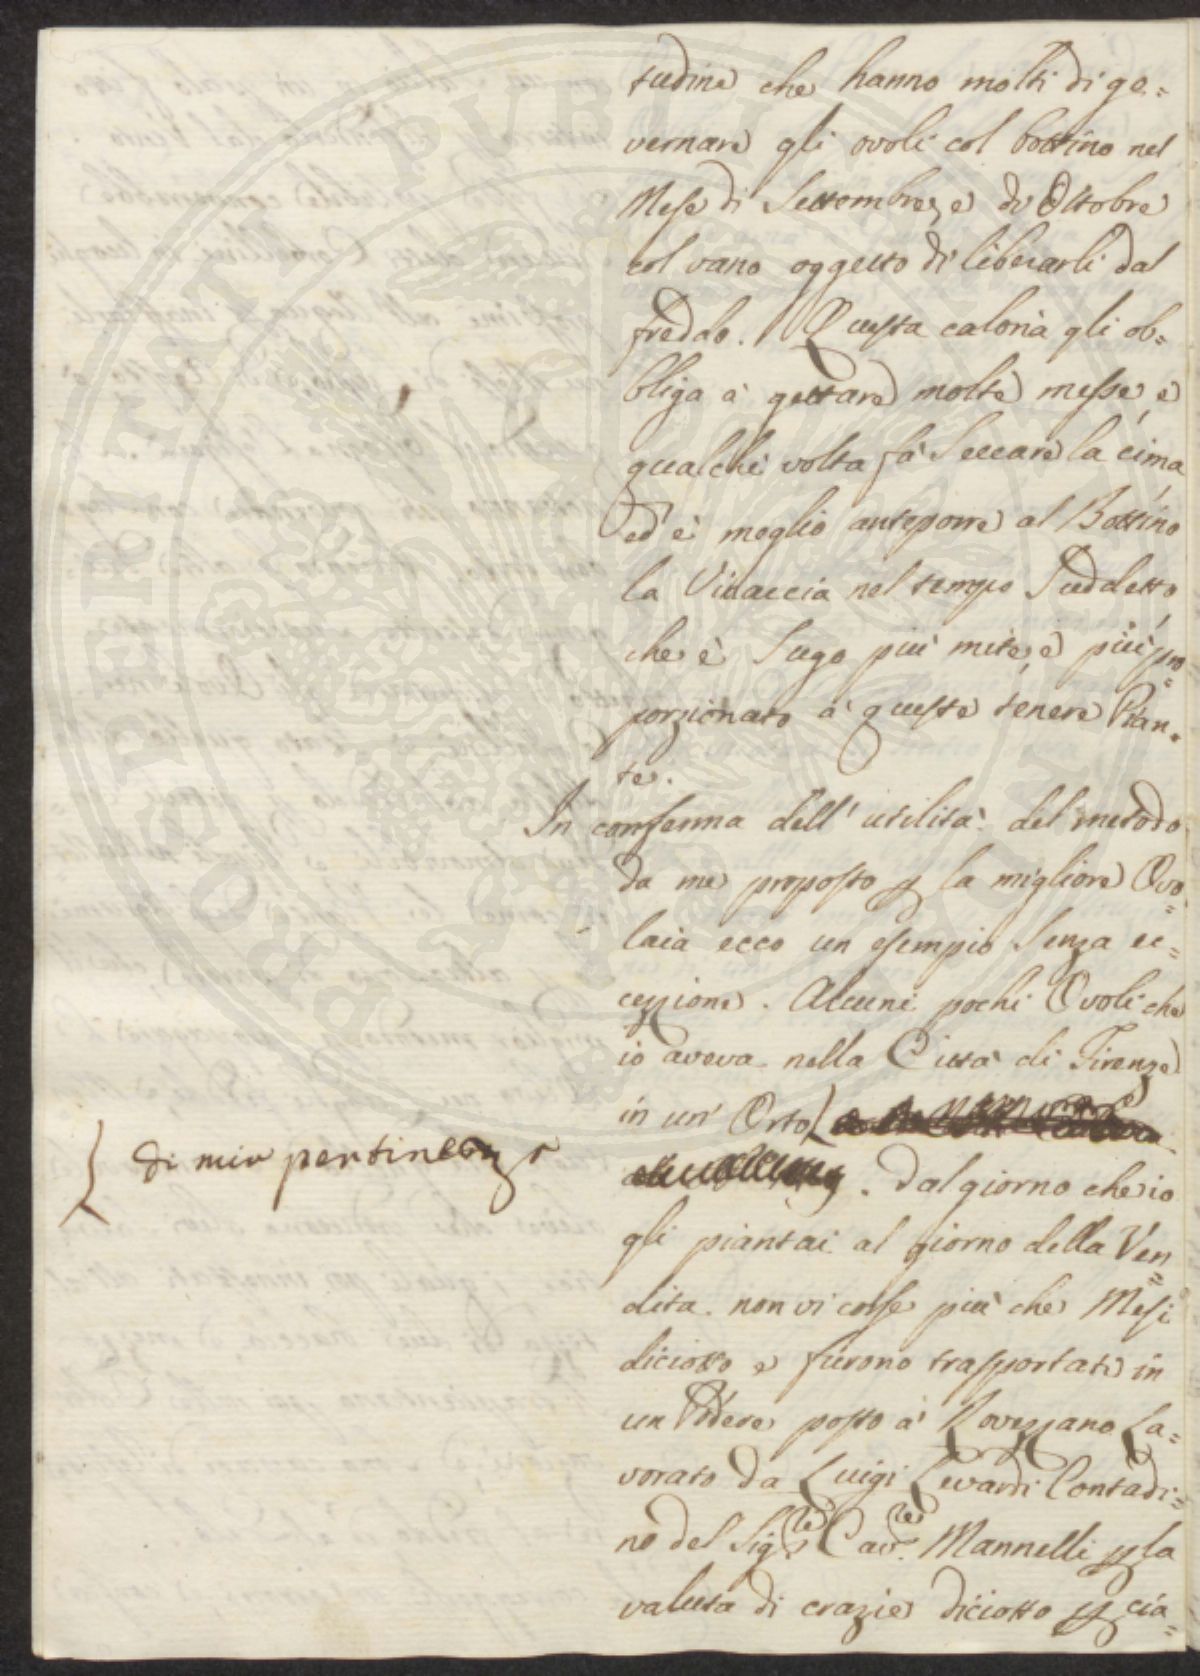 tudine che hanno molti di go=
vernare gli ovoli col bottino nel
Mese di Settembre, e di Ottobre
col vano oggetto di liberarli dal
freddo. Questa calorìa gli ob=
bliga à gettare molte messe, e
qualche volta fà Seccare la cima,
ed è meglio anteporre al Bottino
la Vinaccia nel tempo Suddetto,
che è Sugo più mite, e più pro=
porzionato à queste tenere Pian=
te.
In conferma dell' utilità del metodo
da me proposto p la migliore Ovo=
laia ecco un esempio Senza ec=
cezzione. Alcuni pochi Ovoli che
io aveva nella Città di Firenze
in un' Orto (
( di mia pertinenza
. Dal giorno che io
gli piantai al giorno della Ven=
dita non vi corse più che Mesi
diciotto e furono trasportati in
un Podere posto à Rovezzano La=
vorato da Luigi Levardi Contadi=
no del Sig.re Cav.re Mannelli p la
valuta di crazie diciotto p cia=
PROSPERITATI PUBLI